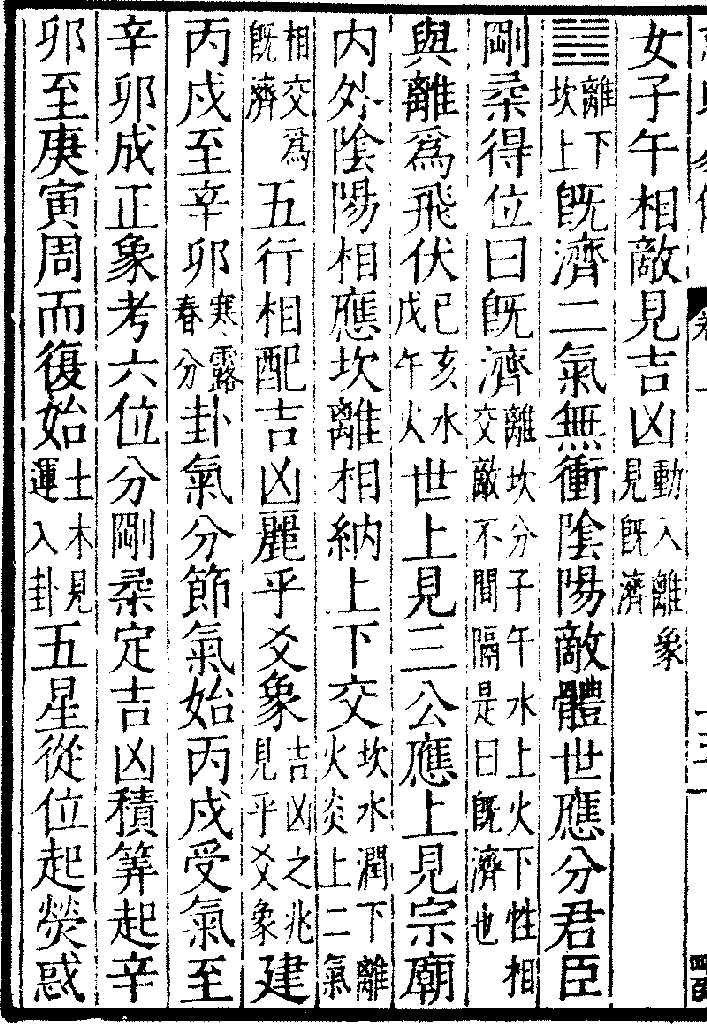 女子午相敵見吉凶動入離象見旣濟
䷾離下坎上旣濟二氣無衝陰陽敵體世應分君臣
剛柔得位曰旣濟離坎分子午水上火下性相交敵不間隔是曰旣濟也
與離爲飛伏己亥水戊午火世上見三公應上見宗廟
內外陰陽相應坎離相納上下交坎水潤下離火炎上二氣
相交爲旣濟五行相配吉凶麗乎爻象吉凶之兆見乎爻象建
丙戌至辛卯寒露春分卦氣分節氣始丙戌受氣至
辛卯成正象考六位分剛柔定吉凶積筭起辛
卯至庚寅周而復始土木見運入卦五星從位起熒惑